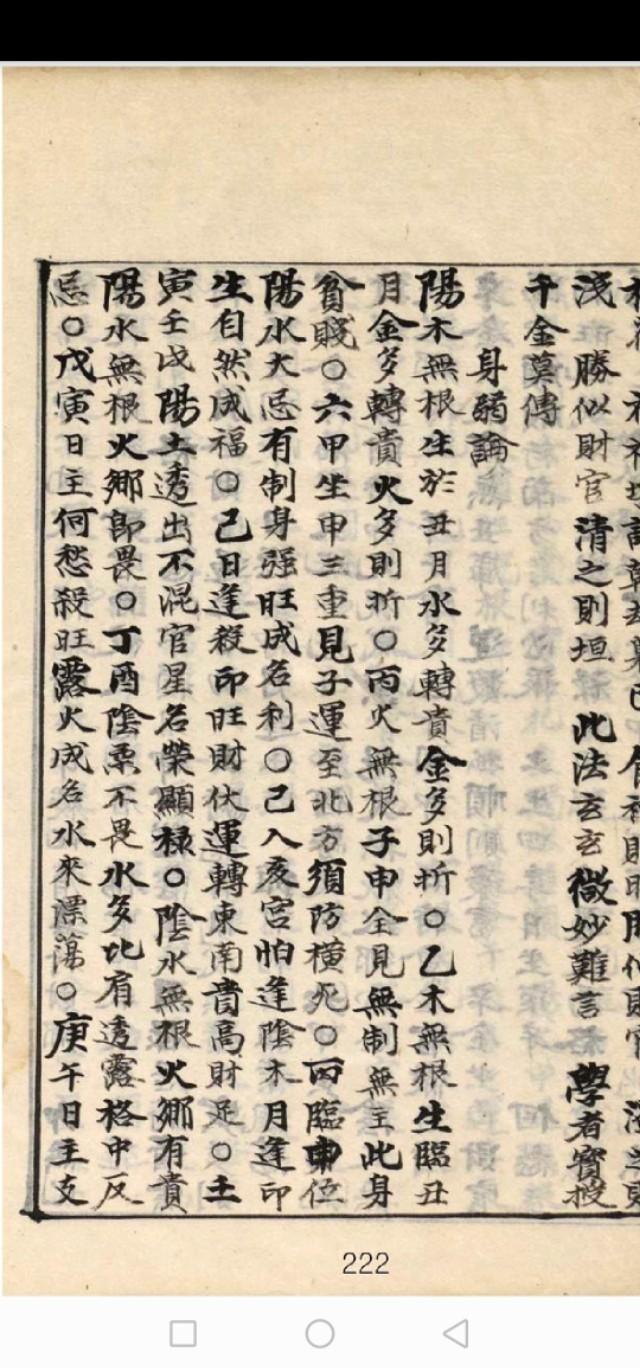 浅勝似財官清之則垣此法玄玄微妙難言學者寶授
千金莫傳
身弱論
陽木無根生於丑月水多轉貴金多則折○乙木無根生臨丑
月金多轉貴火多則折○丙火無根子申全見無制無主此身
貧賤○六甲坐申三重見子運至北方須防橫死○丙臨申位
陽水大忌有制身强旺成名利○己入亥宮怕逢陰木月逢印
生自然成福○己日逢殺印旺財伏運轉東南貴高財足○土
寅壬戌陽土透出不混官星名榮顯祿○陰水無根火鄉有貴
陽水無根火鄉即畏○丁酉陰柔不畏水多比肩透露格中反
忌○戊寅日主何愁殺旺露火成名水來漂蕩○庚午日主支
222